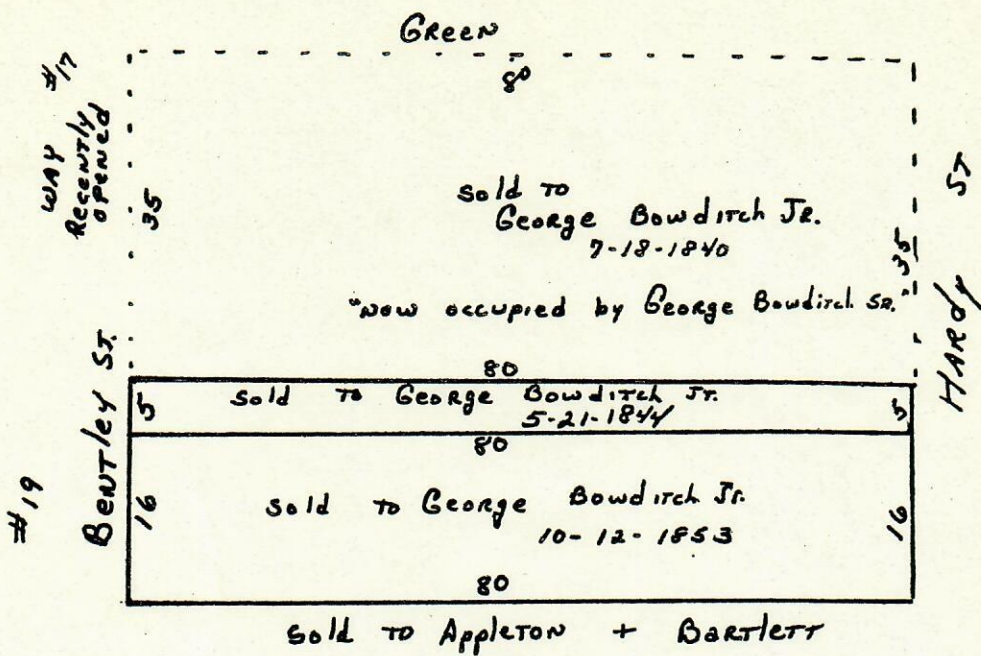 GREEN
80
#17
WAY
Recently
opened
35
Sold to
George Bowditch Jr.
7-18-1840
"now occupied by George Bowditch Sr."
35
HARDy ST
80
BENTley ST.
5
Sold to George Bowditch Jr.
5-21-1844
5
80
#19
16
Sold to George Bowditch Jr.
10-12-1853
16
80
Sold to Appleton + Bartlett